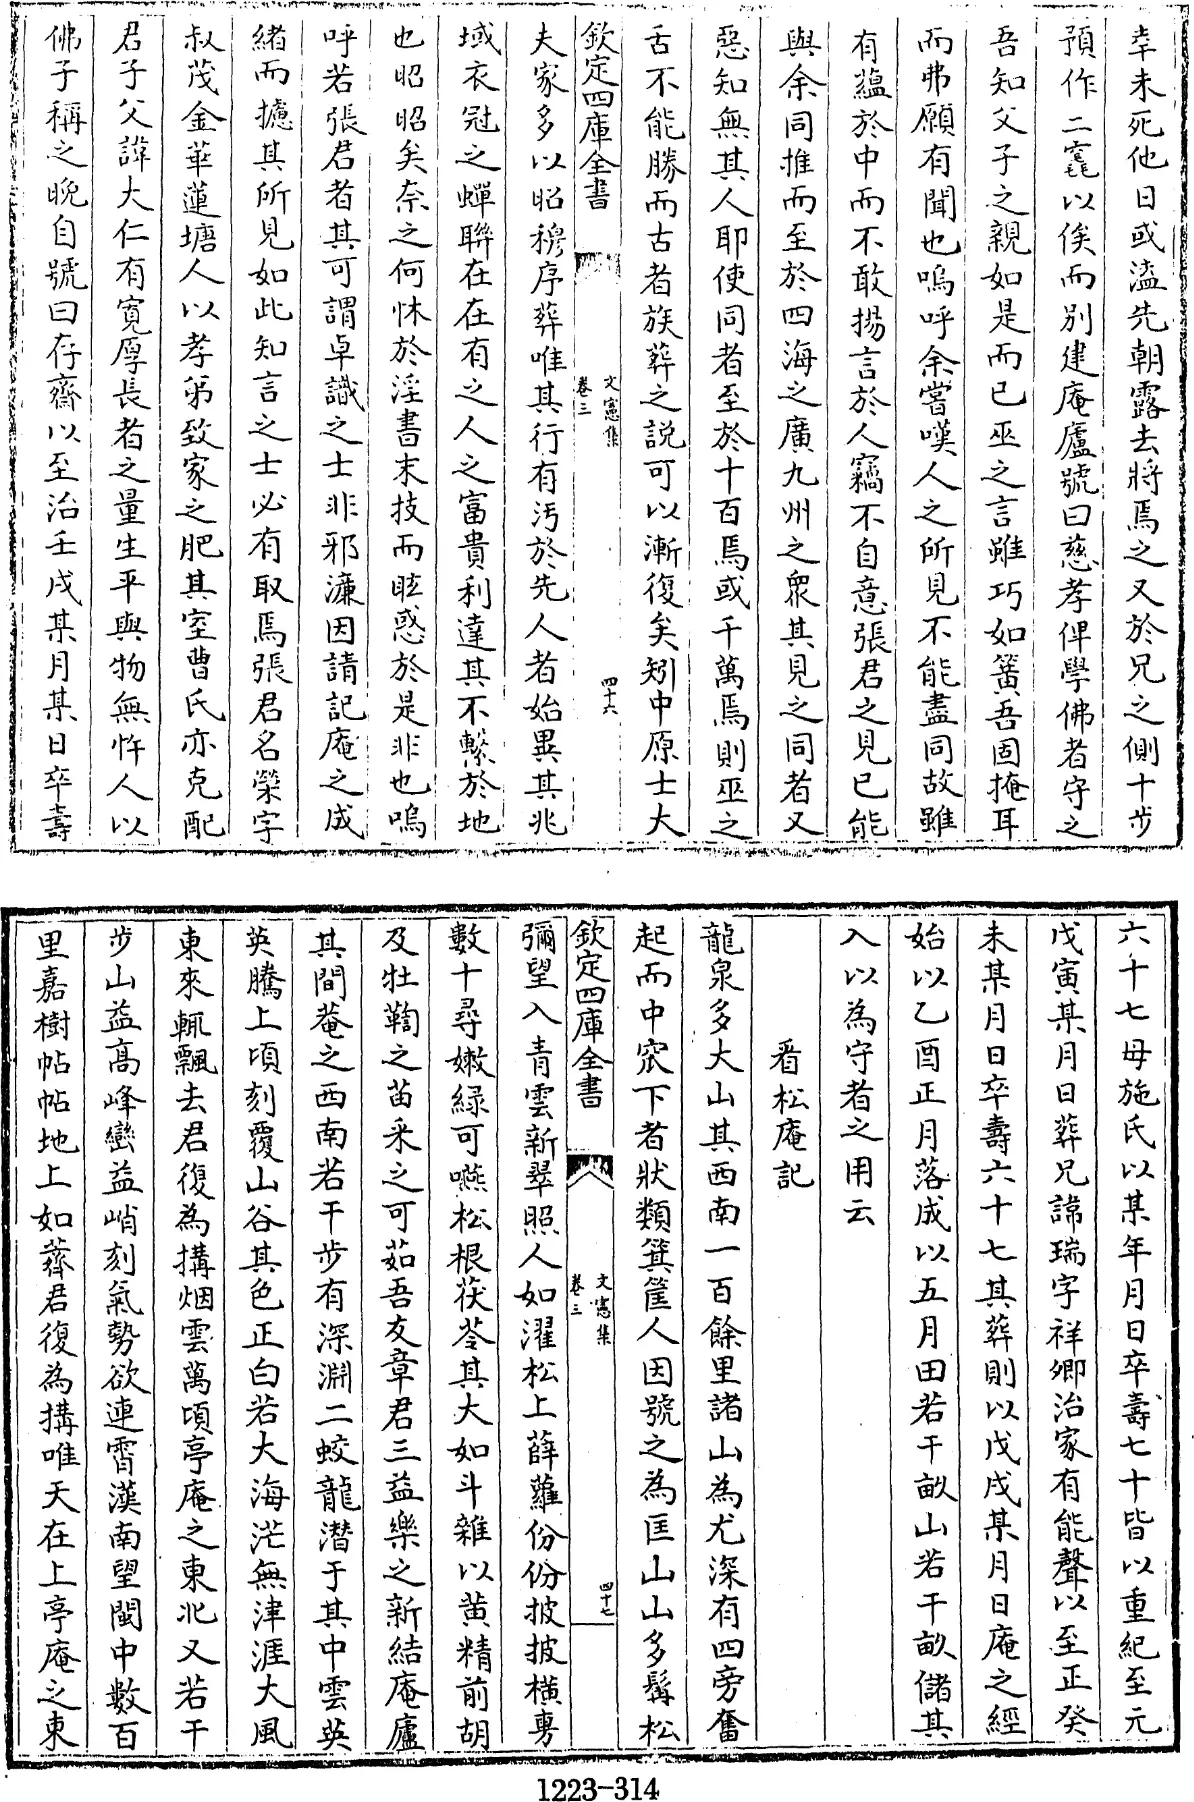 幸未死他日或溘先朝露去將焉之又於兄之側十步
預作二竁以俟而別建庵廬號曰慈孝俾學佛者守之
吾知父子之親如是而已巫之言雖巧如簧吾固掩耳
而弗願有聞也嗚呼余嘗嘆人之所見不能盡同故雖
有蘊於中而不敢揚言於人竊不自意張君之見已能
與余同推而至於四海之廣九州之衆其見之同者又
惡知無其人耶使同者至於十百焉或千萬焉則巫之
舌不能勝而古者族葬之說可以漸復矣矧中原士大
欽定四庫全書
文憲集
卷三
四十六
夫家多以昭穆序葬唯其行有汚於先人者始異其兆
域衣冠之蟬聯在在有之人之富貴利達其不繫於地
也昭昭矣奈之何怵於淫書末技而眩惑於是非也嗚
呼若張君者其可謂卓識之士非邪濂因請記庵之成
緒而攄其所見如此知言之士必有取焉張君名榮字
叔茂金華蓮塘人以孝弟致家之肥其室曹氏亦克配
君子父諱大仁有寬厚長者之量生平與物無忤人以
佛子稱之晚自號曰存齋以至治壬戌某月某日卒壽
六十七母施氏以某年月日卒壽七十皆以重紀至元
戊寅某月日葬兄諱瑞字祥卿治家有能聲以至正癸
未某月日卒壽六十七其葬則以戊戌某月日庵之經
始以乙酉正月落成以五月田若干畝山若干畝儲其
入以為守者之用云
看松庵記
龍泉多大山其西南一百餘里諸山為尤深有四旁奮
起而中窊下者狀類箕筐人因號之為匡山山多髯松
欽定四庫全書
文憲集
卷三
四十七
彌望入青雲新翠照人如濯松上薜蘿份份披披橫敷
數十尋嫩綠可嚥松根茯苓其大如斗雜以黃精前胡
及牡鞠之苗采之可茹吾友章君三益樂之新結庵廬
其間菴之西南若干步有深淵二蛟龍潛于其中雲英
英騰上頃刻覆山谷其色正白若大海茫無津涯大風
東來輒飄去君復為搆烟雲萬頃亭庵之東北又若干
步山益高峰巒益峭刻氣勢欲連霄漢南望閩中數百
里嘉樹帖帖地上如薺君復為搆唯天在上亭庵之東
1223-314